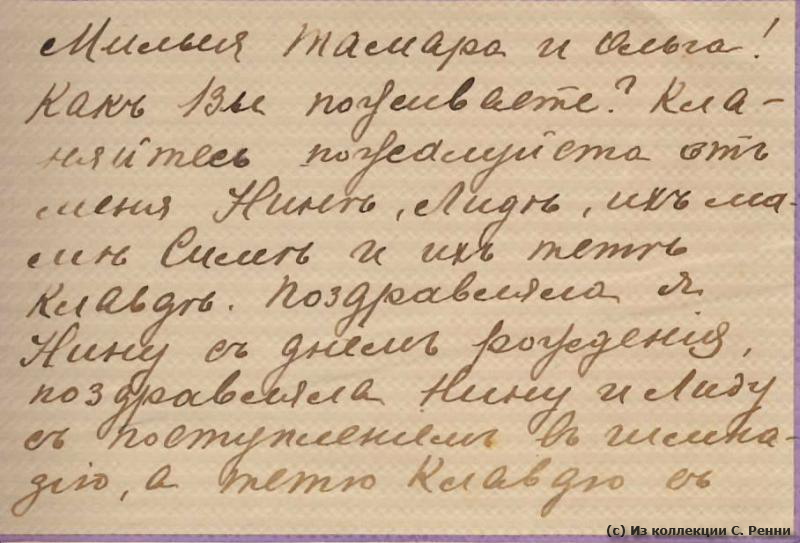 Милыя Тамара и Ольга!
Какъ Вы поживаете? Кла-
няйтесь пожалуйста отъ
меня Нинѣ, Лидѣ, ихъ ма-
мѣ Симѣ и ихъ тетѣ
Клавдѣ. Поздравляла я
Нину съ днемъ рожденія,
поздравляла Нину и Лиду
съ поступленіемъ въ гимна-
зію, а тетю Клавдю съ
(c) Из коллекции С. Ренни